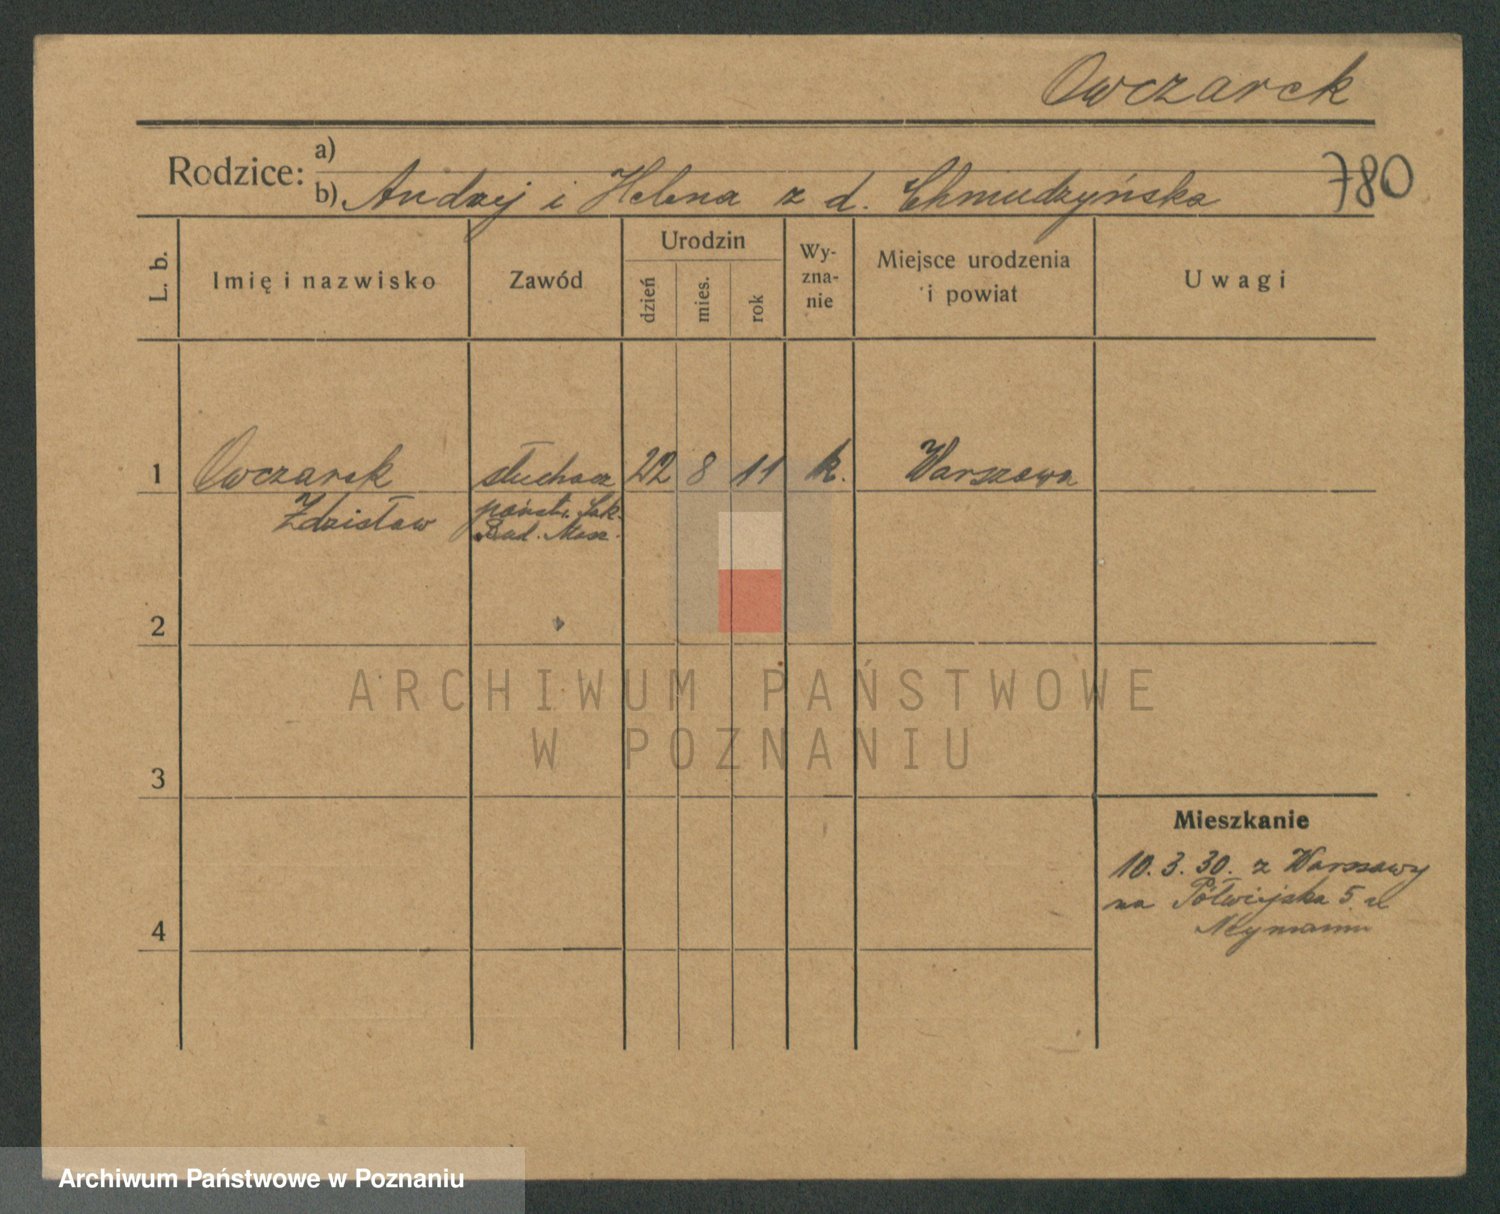 Owczarek
Rodzice: a)
b) Andrzej i Helena z d. Chmudzyńska
780
L. b.
Imię i nazwisko
Zawód
Urodzin
dzień
mies.
rok
Wy-
zna-
nie
Miejsce urodzenia
i powiat
Uwagi
1 Owczarek słuchacz 22 8 11 k. Warszawa
Zdzisław państw. Szk.
Bud. Masz.
2
3
4
ARCHIWUM PAŃSTWOWE
W POZNANIU
Mieszkanie
10.3.30. z Warszawy
na Półwiejska 5 u
Archiwum Państwowe w Poznaniu